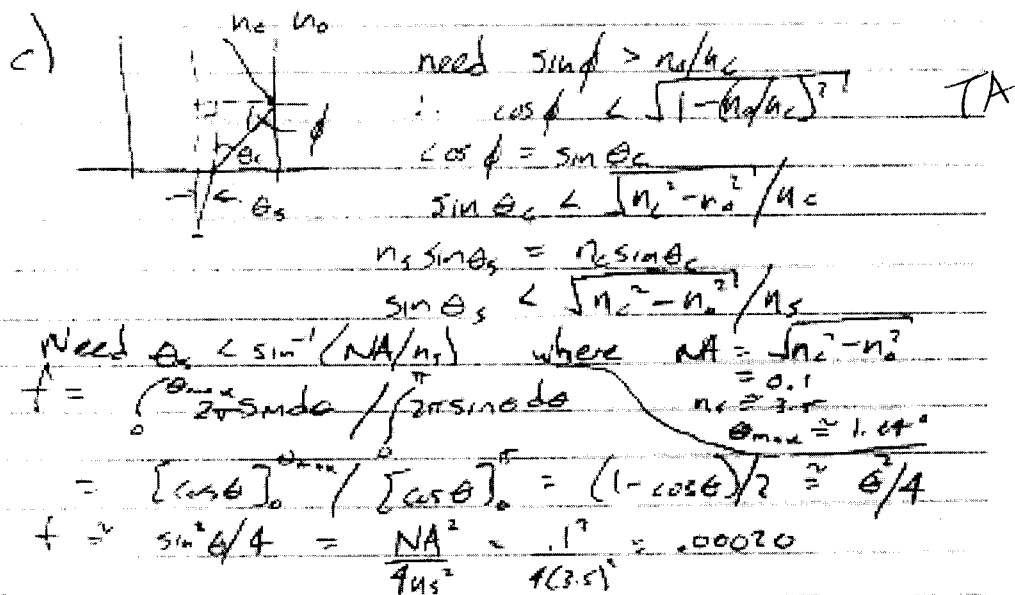 c)
n_c n_o
need sinϕ > n_o/n_c
∴ cosϕ < √(1-(n_o/n_c)²)
TA
ϕ
θ_c
cosϕ = sinθ_c
θ_s
sinθ_c < √(n_c²-n_o²)/n_c
n_s sinθ_s = n_c sinθ_c
sinθ_s < √(n_c²-n_o²)/n_s
Need θ_s < sin⁻¹(NA/n_s) where NA = √(n_c²-n_o²)
= 0.1
f = ∫₀^θmax 2π sin dθ / ∫₀^π 2π sinθ dθ
θ_max ≅ 1.64°
= [cosθ]₀^θmax / [cosθ]₀^π = (1-cosθ)/2 ≅ θ²/4
f ≅ sin²θ/4 = NA²/4n_s² = .1²/4(3.5)² = .00020